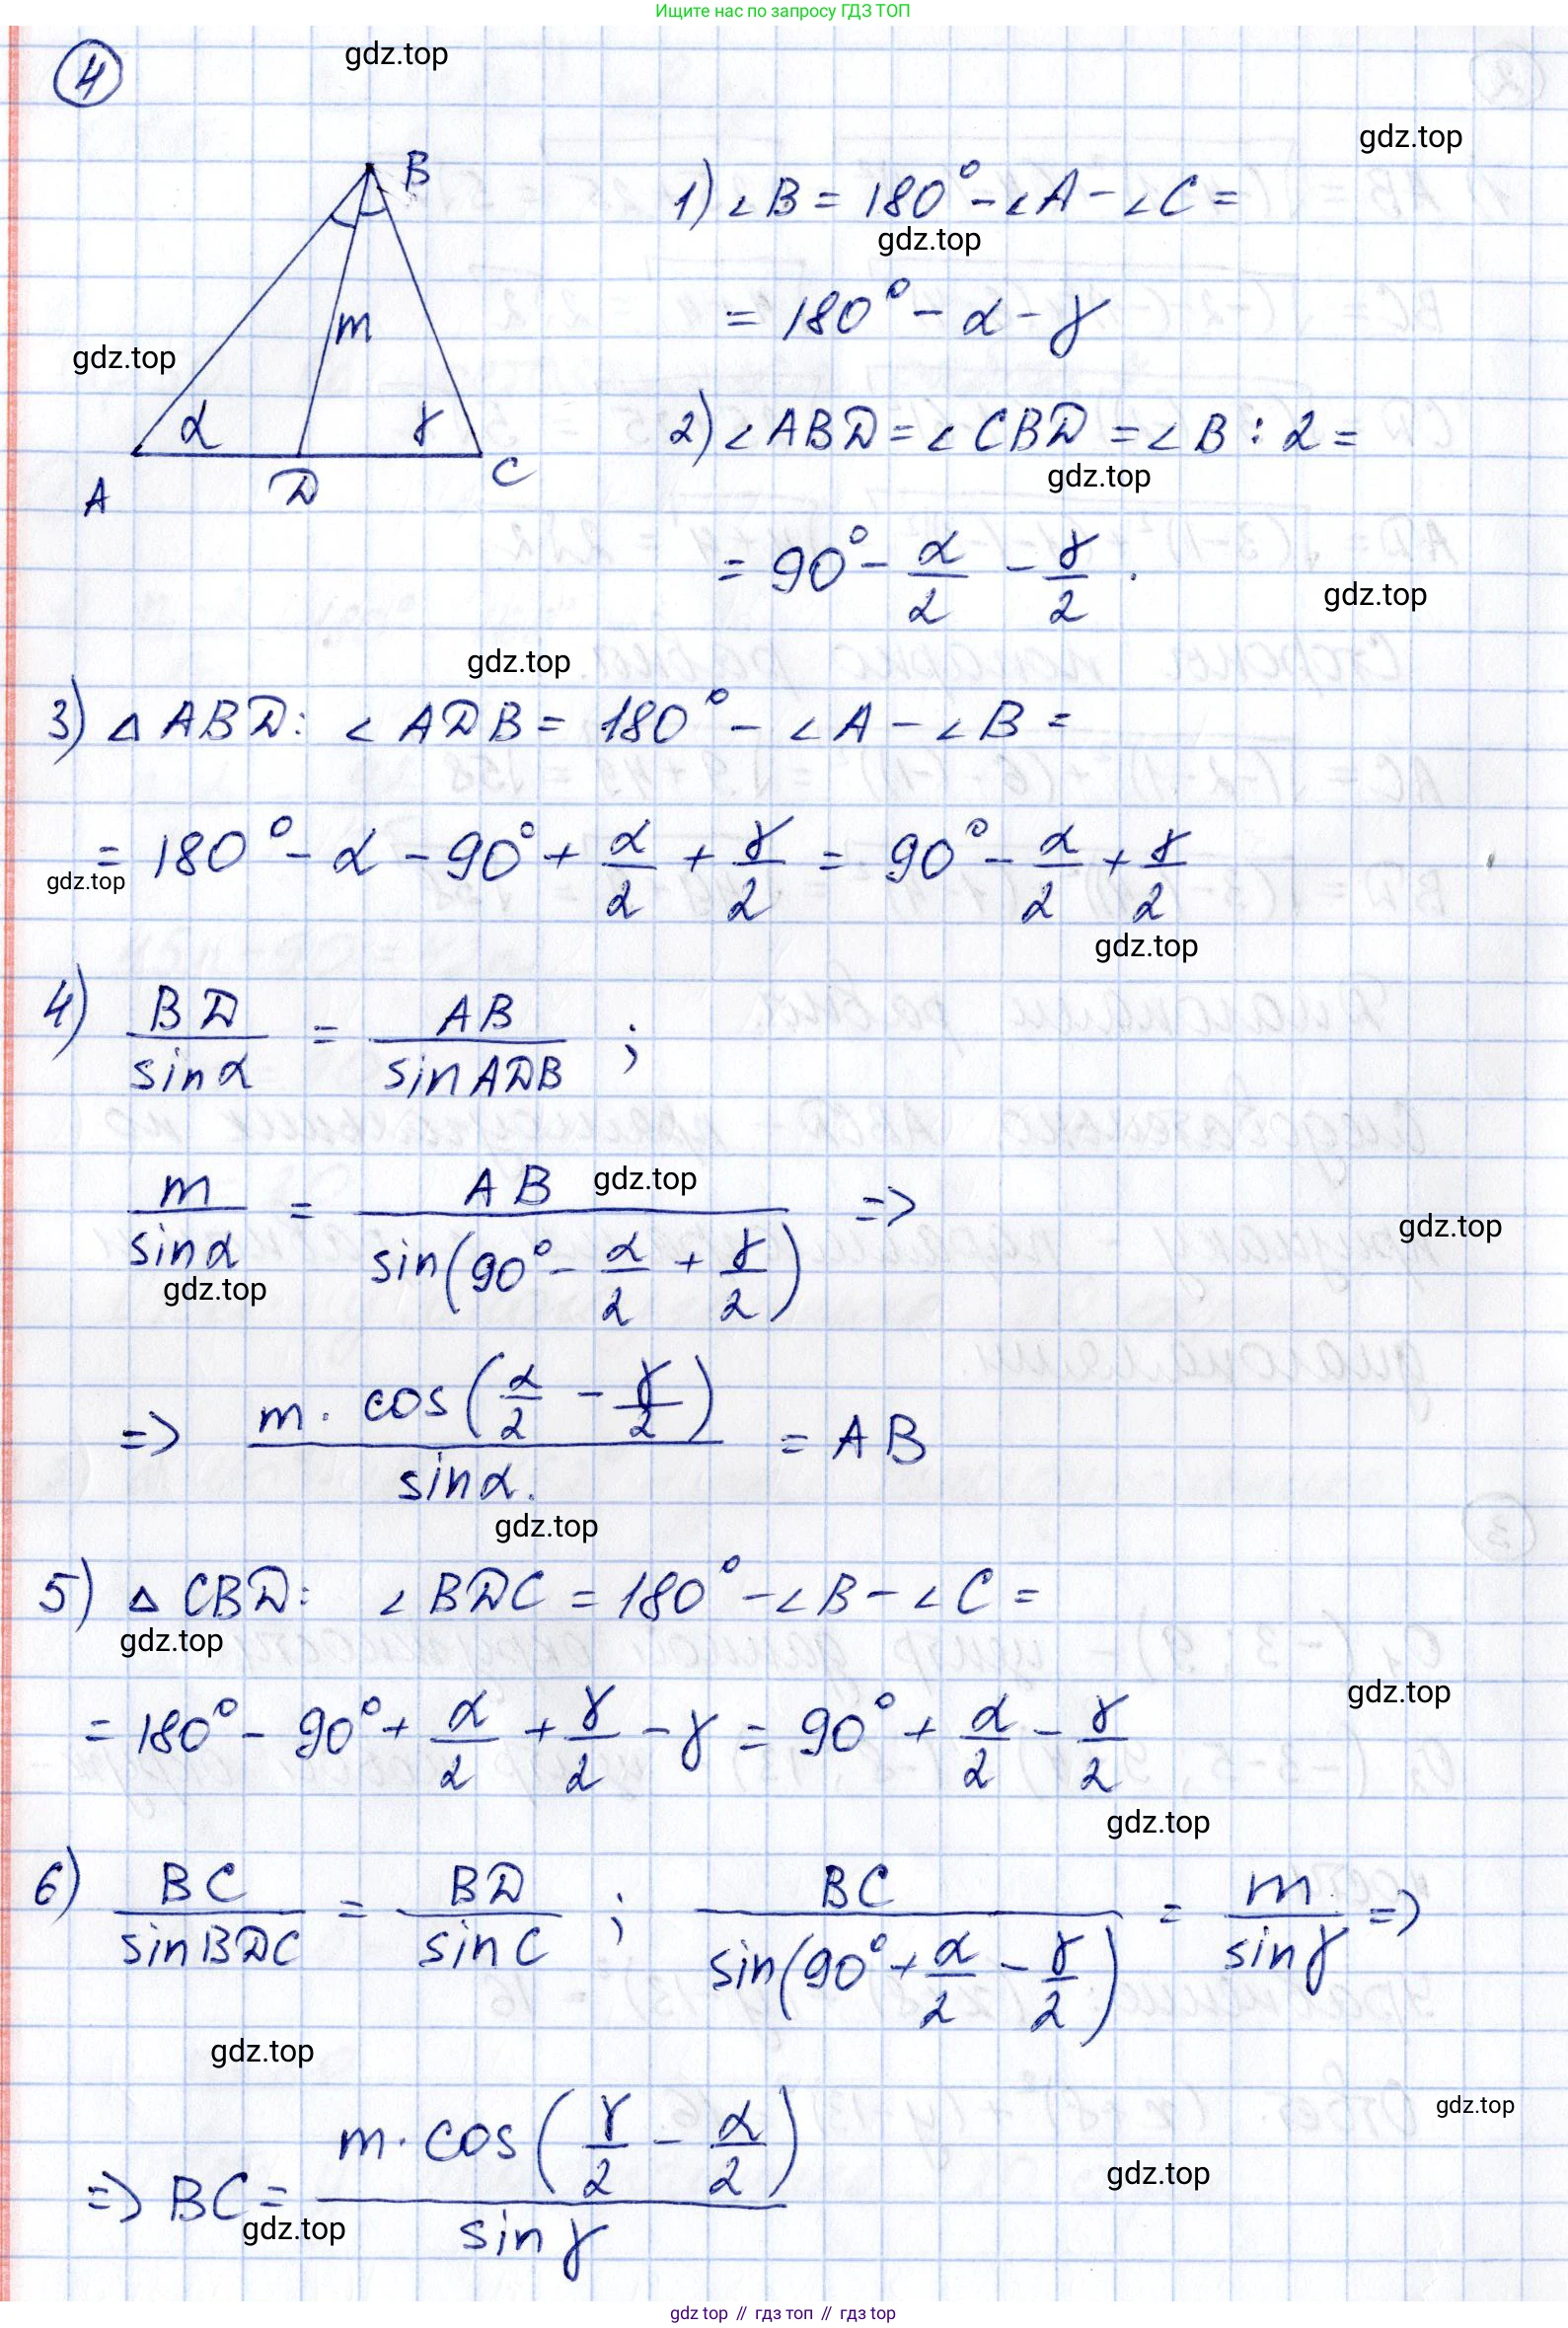 Ищите нас по запросу ГДЗ ТОП
4
gdz.top
gdz.top
B
1) ∠B = 180° - ∠A - ∠C =
gdz.top
= 180° - α - γ
m
gdz.top
2) ∠ABD = ∠CBD = ∠B : 2 =
α γ
A D C
gdz.top
= 90° - α/2 - γ/2 .
gdz.top
gdz.top
3) △ABD: ∠ADB = 180° - ∠A - ∠B =
= 180° - α - 90° + α/2 + γ/2 = 90° - α/2 + γ/2
gdz.top
gdz.top
4) BD/sinα = AB/sinADB ;
m/sinα = AB/sin(90° - α/2 + γ/2) =>
gdz.top
gdz.top
gdz.top
=> m · cos(α/2 - γ/2)/sinα. = AB
gdz.top
5) △CBD: ∠BDC = 180° - ∠B - ∠C =
gdz.top
gdz.top
= 180° - 90° + α/2 + γ/2 - γ = 90° + α/2 - γ/2
gdz.top
6) BC/sinBDC = BD/sinC ; BC/sin(90° + α/2 - γ/2) = m/sinγ =>
gdz.top
gdz.top
=> BC = m · cos(γ/2 - α/2)/sinγ
gdz.top
gdz.top
gdz top // гдз топ // гдз top